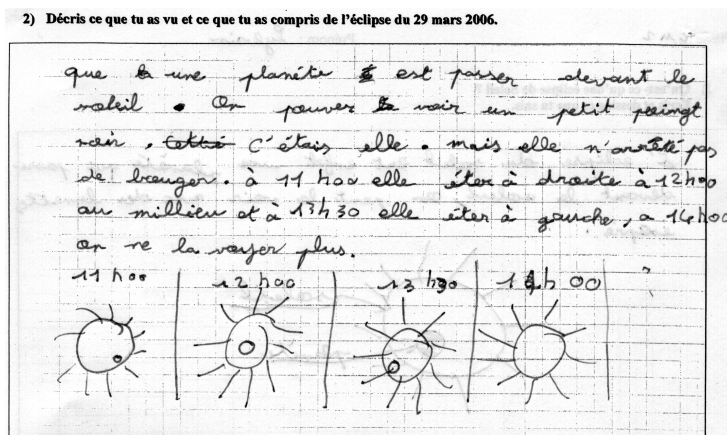 2) Décris ce que tu as vu et ce que tu as compris de l'éclipse du 29 mars 2006.
que une planéte est passer devant le
soleil. On pouver voir un petit poingt
noir. C'étais elle. mais elle n'arrété pas
de bouger. à 11 h00 elle éter à droite à 12h00
au millieu et à 13h30 elle éter à gauche, a 14h00
on ne la voyer plus.
11 h00 12 h00 13 h30 14h00